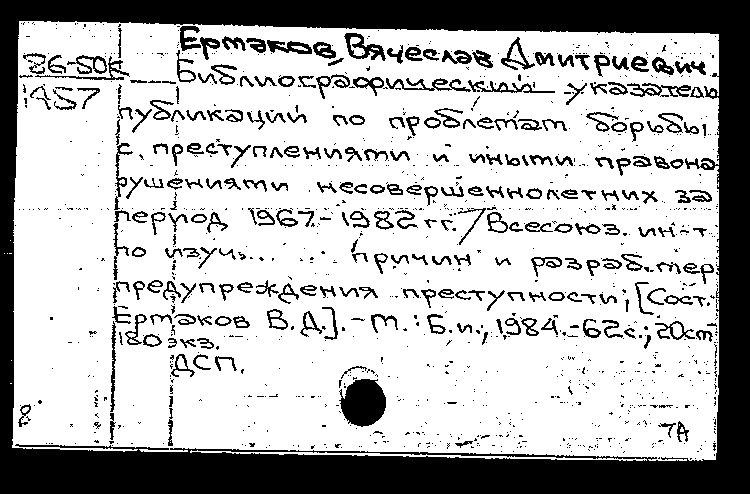 Ермаков, Вячеслав Дмитриевич.
86-50К
Библиографический указатель
1457
публикаций по проблемам борьбы
с преступлениями и иными правона
рушениями несовершеннолетних за
период 1967-1982 гг. / Всесоюз. ин-т
по изуч.... причин и разраб. мер
предупреждения преступности; [Сост.
Ермаков В.Д.]. - М.: Б.и., 1984. - 62с.; 20см
180 экз.
ДСП.
8
7А